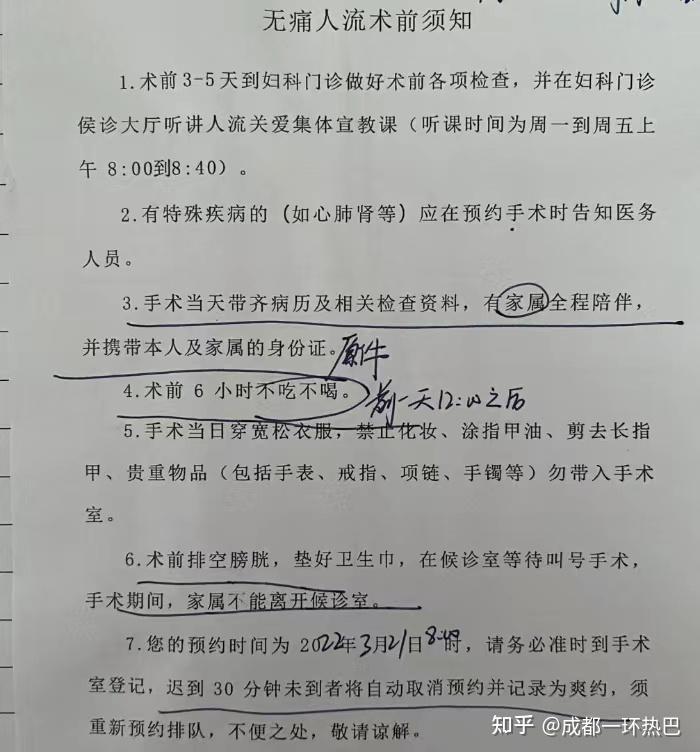 无痛人流术前须知
1.术前3-5天到妇科门诊做好术前各项检查，并在妇科门诊
侯诊大厅听讲人流关爱集体宣教课（听课时间为周一到周五上
午 8:00到8:40）。
2.有特殊疾病的（如心肺肾等）应在预约手术时告知医务
人员。
3.手术当天带齐病历及相关检查资料，有家属全程陪伴，
并携带本人及家属的身份证。原件
4.术前 6 小时不吃不喝。前一天12:00之后
5.手术当日穿宽松衣服，禁止化妆、涂指甲油、剪去长指
甲、贵重物品（包括手表、戒指、项链、手镯等）勿带入手术
室。
6.术前排空膀胱，垫好卫生巾，在候诊室等待叫号手术，
手术期间，家属不能离开候诊室。
7.您的预约时间为 2022年3月21日8:40时，请务必准时到手术
室登记，迟到 30 分钟未到者将自动取消预约并记录为爽约，须
重新预约排队，不便之处，敬请谅解。
知乎 @成都一环热巴